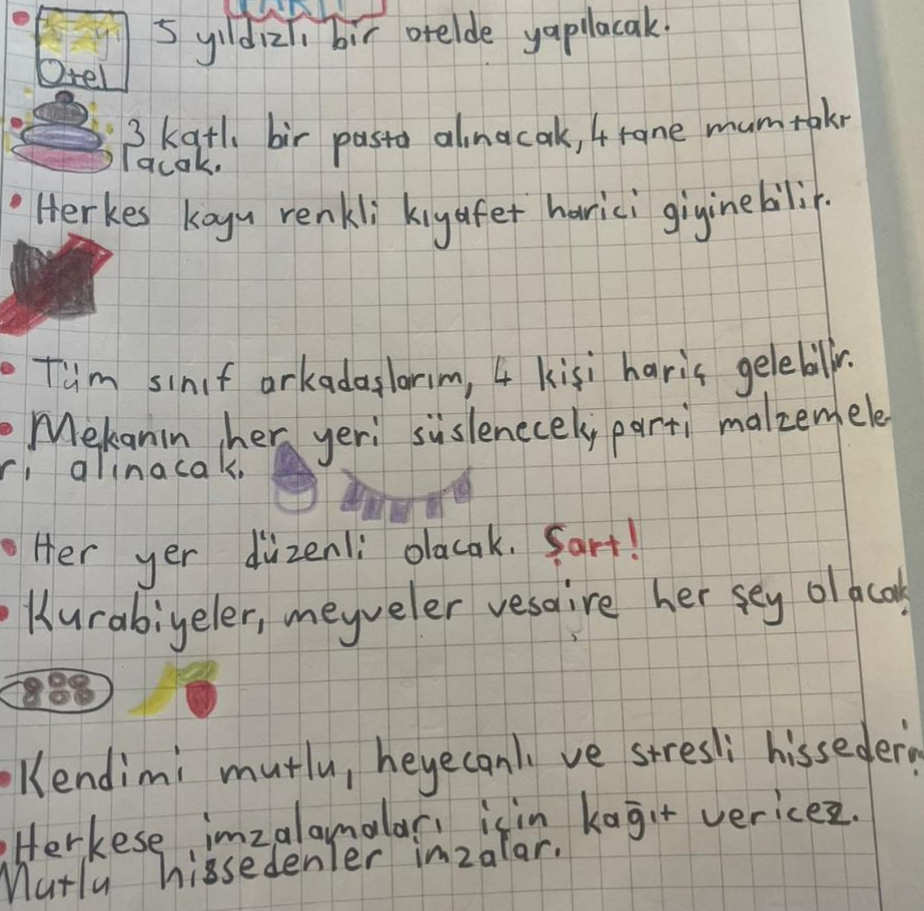 5 yıldızlı bir otelde yapılacak.
Otel
3 katlı bir pasta alınacak, 4 tane mum takı
lacak.
• Herkes koyu renkli kıyafet harici giyinebilir.
• Tüm sınıf arkadaşlarım, 4 kişi hariç gelebilir.
• Mekanın her yeri süslenecek, parti malzemele
ri alınacak.
• Her yer düzenli olacak. Şart!
• Kurabiyeler, meyveler vesaire her şey olacak
• Kendimi mutlu, heyecanlı ve stresli hissederim
• Herkese imzalamaları için kağıt vericez.
Mutlu hissedenler imzalar.